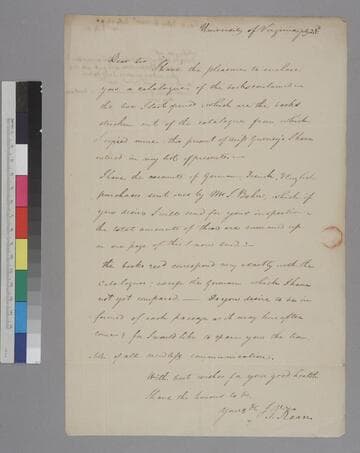 University of Virginia
Dear Sir I have the pleasure to enclose
you a catalogue of the books contained in
the box I last opened, which are the books
stricken out of the catalogue from which
I copied mine. this present of Miss Gurney's I have
entered in my list of presents.—
I have the accounts of German, French, & English
purchases sent me by Mr J. Bohn, which if
you desire I will send for your inspection —
the total amounts of them are summed up
in one page of the I now send. —
the books rec'd correspond very exactly with the
Catalogue, except the German which I have
not yet compared — Do you desire to be in
formed of each package as it may hereafter
come, for I would like to spare you the trou
ble of all needless communication.
With best wishes for your good health
I have the honour to be
Kean